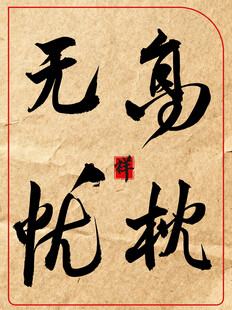 高枕
无忧
祥